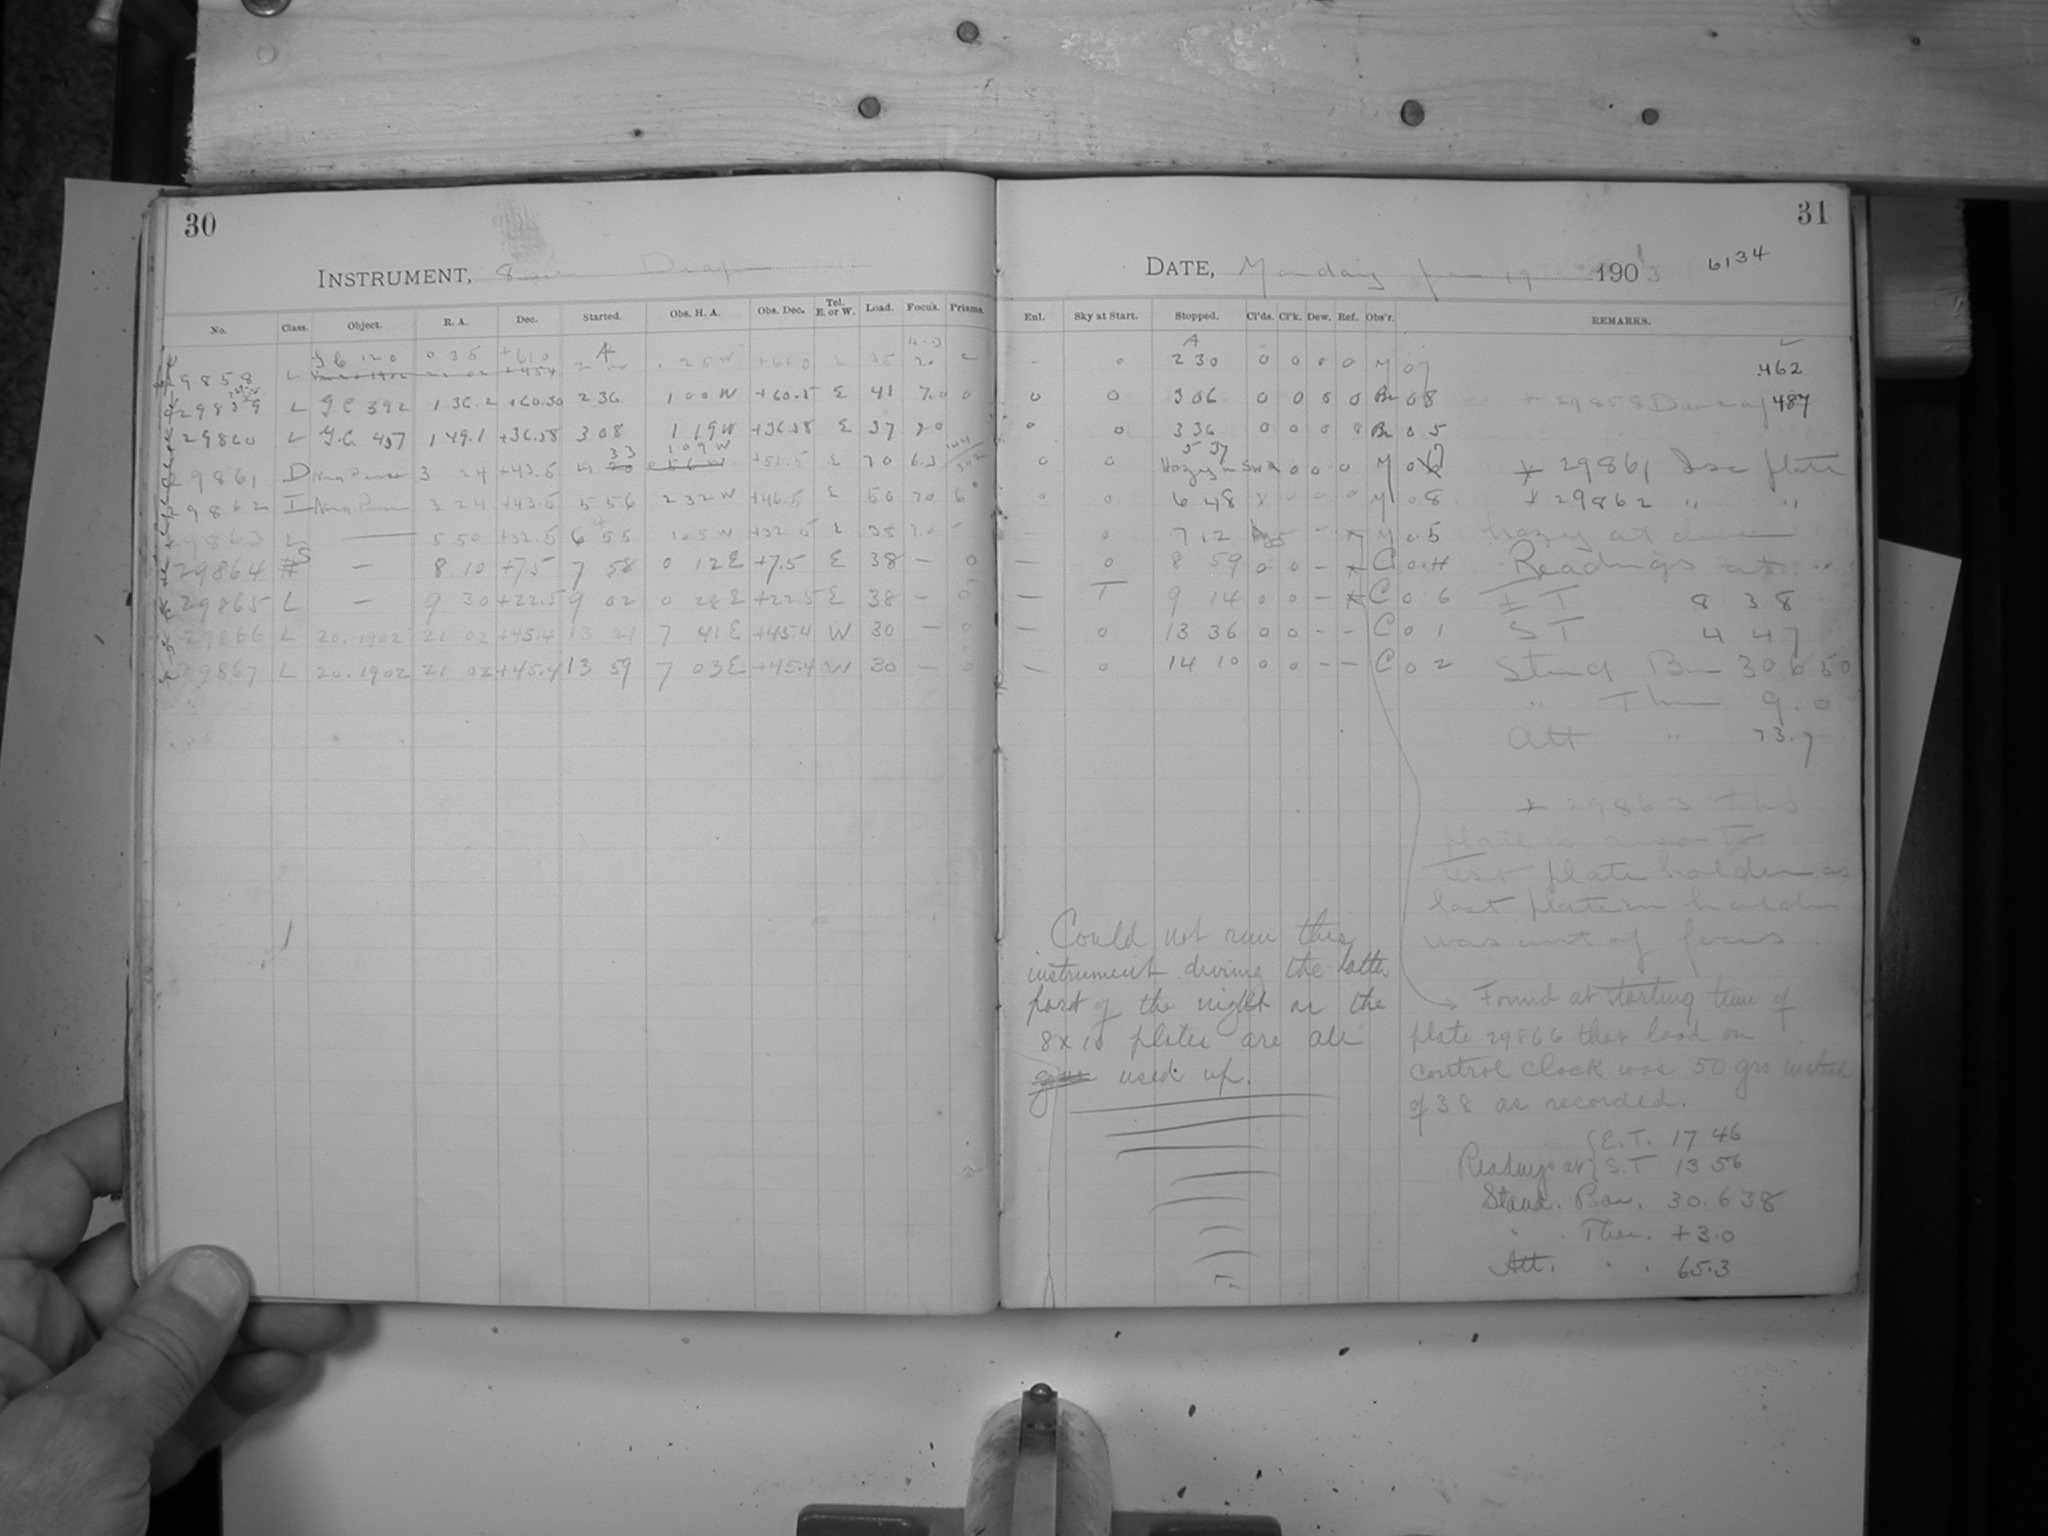 30
INSTRUMENT, 8 Drap
No. Class. Object. R. A. Dec. Started. Obs. H. A. Obs. Dec. Tel. E. or W. Load. Focus. Prisms.
29858 L G C 120 0 35 +61.0
29859 L G.C. 392 1 36.2 +60.50 2 36 1 00 W +60.5 E 41 7.0 0
29860 L G.C. 457 1 49.1 3 08 1 19 W E 37 7.0
29861 D Nova Persei 3 24 +43.5 4 33 1 09 W +51.5 E 70 6.3
29862 I Nova Persei 3 24 +43.5 5 56 2 32 W +46.5 E 50 7.0 6°
29863 L — 5 50 +32.5 6 55 1 05 W +32.5 E 38 7.0 –
29864 S — 8 10 +7.5 7 58 0 12 E +7.5 E 38 — 0
29865 L — 9 30 +22.5 9 02 0 28 E +22.5 E 38 — 0
29866 L 20.1902 21 02 +45.4 13 21 7 41 E +45.4 W 30 — 0
29867 L 20.1902 21 02 +45.4 13 59 7 03 E +45.4 W 30 — 0
31
DATE, Monday Jan 19 1903 6134
Enl. Sky at Start. Stopped. Cl'ds. Cl'k. Dew. Ref. Obs'r. REMARKS.
– 0 2 30 0 0 0 0 M 07 .462
0 0 3 06 0 0 0 0 Br 08 * 29858 487
0 0 3 36 0 0 0 0 Br 05
0 0 5 37 0 0 0 M 07 * 29861 Iso plate
0 0 6 48 M 08 * 29862 " "
– 0 7 12 M 0.5 hazy at close
— 0 8 59 0 0 – C 04 Readings at
— T 9 14 0 0 – C 06 E T 8 38
— 0 13 36 0 0 – – C 01 S T 4 47
— 0 14 10 0 0 – – C 02 Stand Bar 30.650
" Ther 9.0
Att " 73.7
* 29863 This
plate is
Test plate holder as
last plate in holder
was out of focus.
Could not run this
instrument during the latter
part of the night as the
8x10 plates are all
used up.
Found at starting time of
plate 29866 that load on
control clock was 50 grs instead
of 38 as recorded.
Readings at { E.T. 17 46
S.T 13 56
Stand. Bar. 30.638
" Ther. +3.0
Att. " 65.3